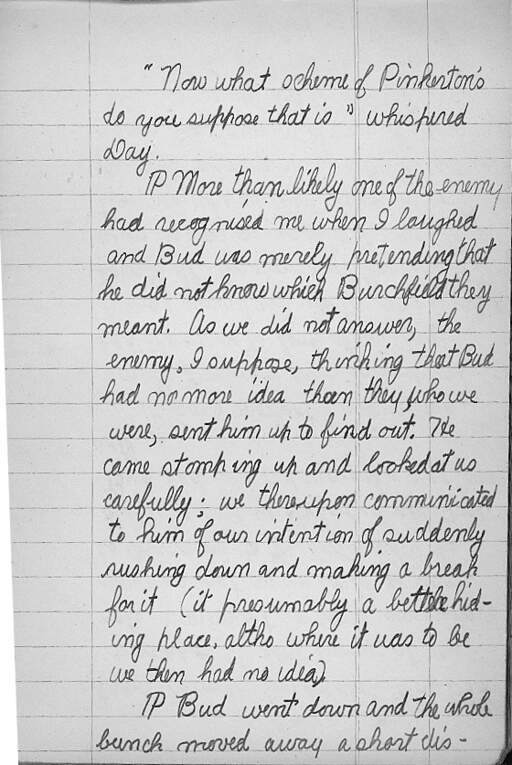 " Now what scheme of Pinkerton's
do you suppose that is " whispered
Day.
IP More than likely one of the enemy
had recognised me when I laughed
and Bud was merely pretending that
he did not know which Burchfield they
meant. As we did not answer, the
enemy, I suppose, thinking that Bud
had no more idea than they who we
were, sent him up to find out. He
came stomping up and looked at us
carefully; we thereupon communicated
to him of our intention of suddenly
rushing down and making a break
for it (it presumably a better hid-
ing place, altho where it was to be
we then had no idea)
IP Bud went down and the whole
bunch moved away a short dis-